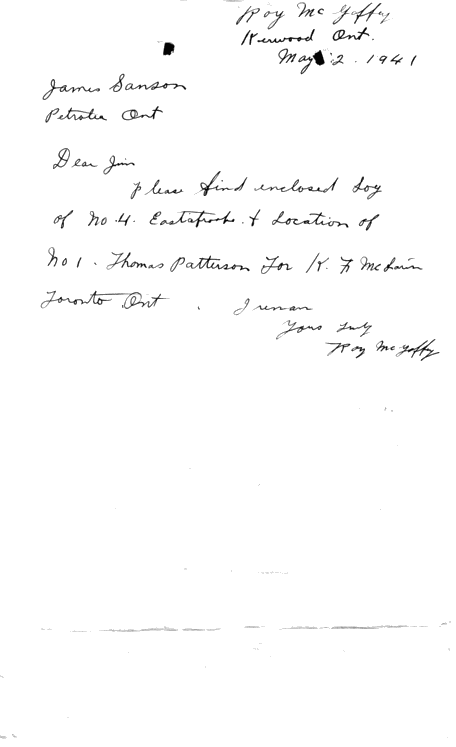 Roy Mc Gaffey
Kerwood Ont.
May 2. 1941
James Sanson
Petrolia Ont
Dear Jim
Please find enclosed Log
of No. 4. + Location of
No 1. Thomas Patterson For K. F. McLain
Toronto Ont. I remain
Yours Truly
Roy McGaffey